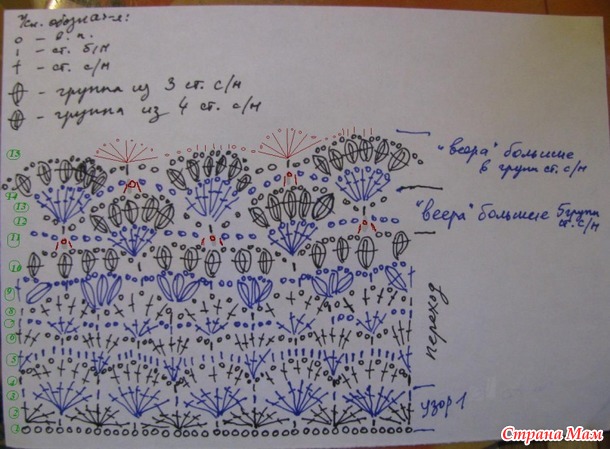 Усл. обознач-я:
о – в. п.
ı – ст. б/н
† – ст. с/н
– группа из 3 ст. с/н
– группа из 4 ст. с/н
"веера" большие
в групп ст. с/н
"веера" большие 5 групп
ст. с/н
переход
узор 1
15
14
13
12
11
10
9
8
7
6
5
4
3
2
1
Страна Мам